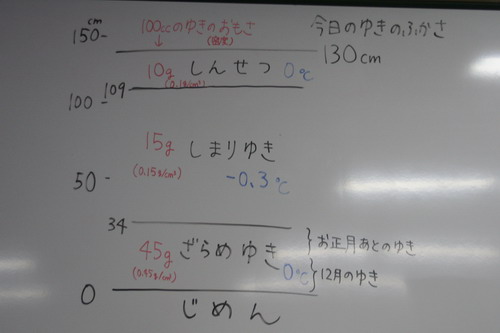 cm
150-
100ccのゆきのおもさ
(密度)
↓
今日のゆきのふかさ
130cm
10g しんせつ 0℃
(0.1g/cm³)
109
100-
15g しまりゆき
(0.15g/cm³)
-0.3℃
50-
34
45g ざらめゆき
(0.45g/cm³)
0℃
}お正月あとのゆき
}12月のゆき
0
じめん